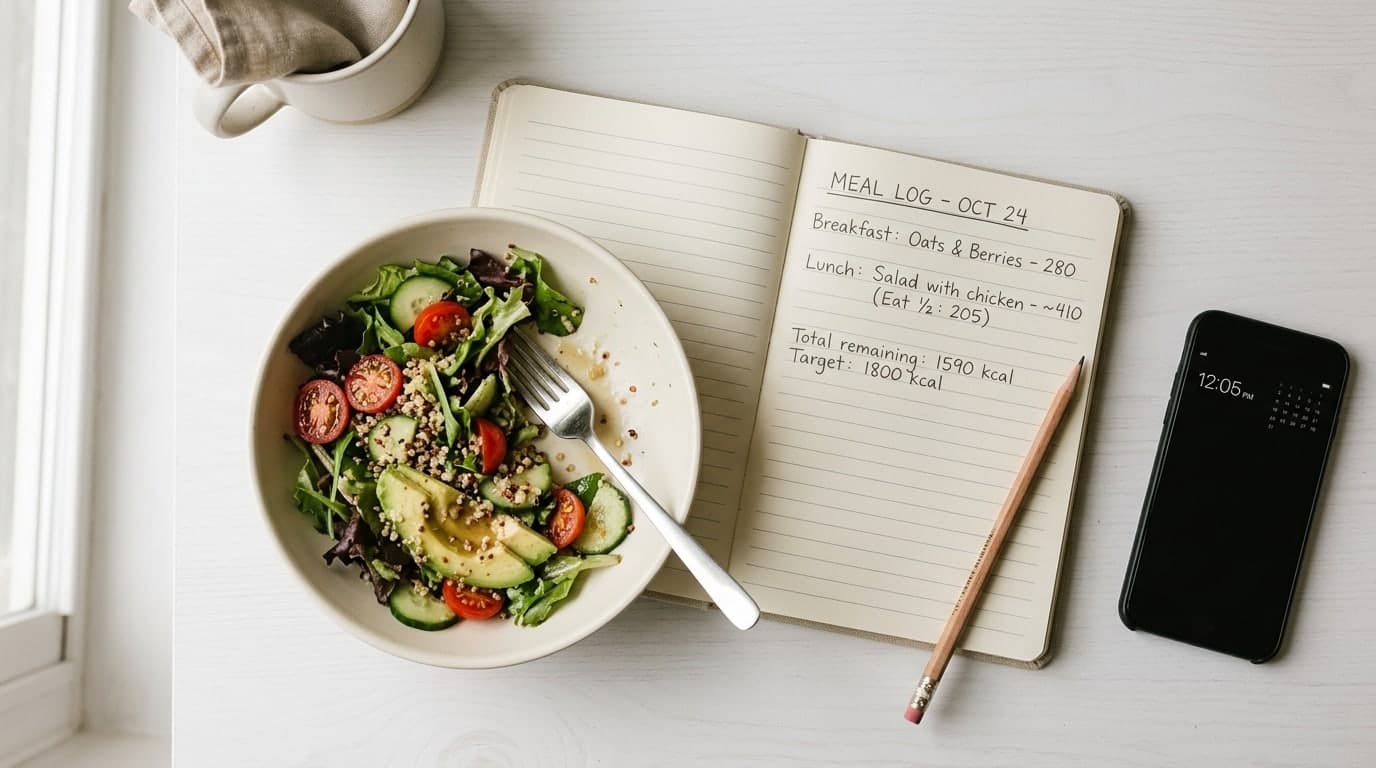 MEAL LOG – OCT 24
Breakfast: Oats & Berries – 280
Lunch: Salad with chicken – ~410
(Eat ½: 205)
Total remaining: 1590 kcal
Target: 1800 kcal
12:05 PM